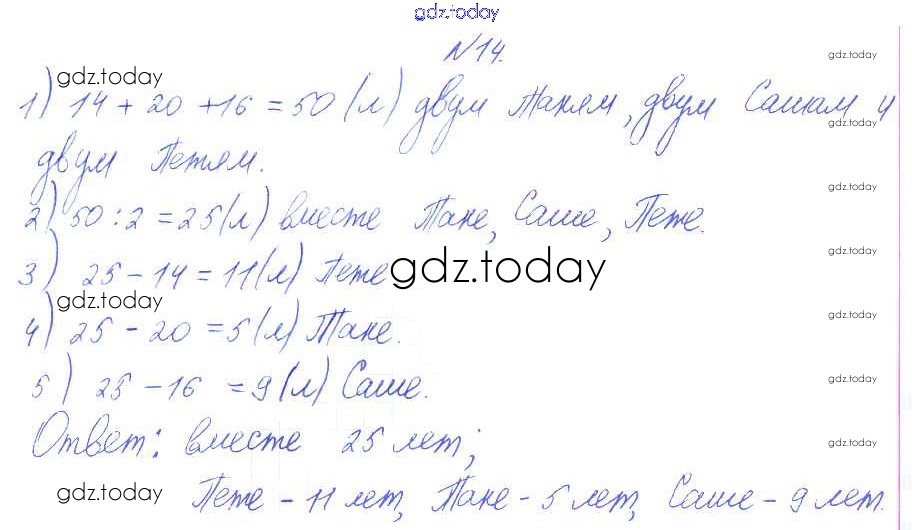 gdz.today
№14.
gdz.today
gdz.today
1) 14 + 20 + 16 = 50 (л) двум Таням, двум Сашам и
gdz.today
двум Петям.
gdz.today
2) 50 : 2 = 25 (л) вместе Тане, Саше, Пете.
gdz.today
3) 25 - 14 = 11 (л) Пете
gdz.today
gdz.today
gdz.today
4) 25 - 20 = 5 (л) Тане.
gdz.today
5) 25 - 16 = 9 (л) Саше.
Ответ: вместе 25 лет;
gdz.today
gdz.today
Пете - 11 лет, Тане - 5 лет, Саше - 9 лет.
gdz.today